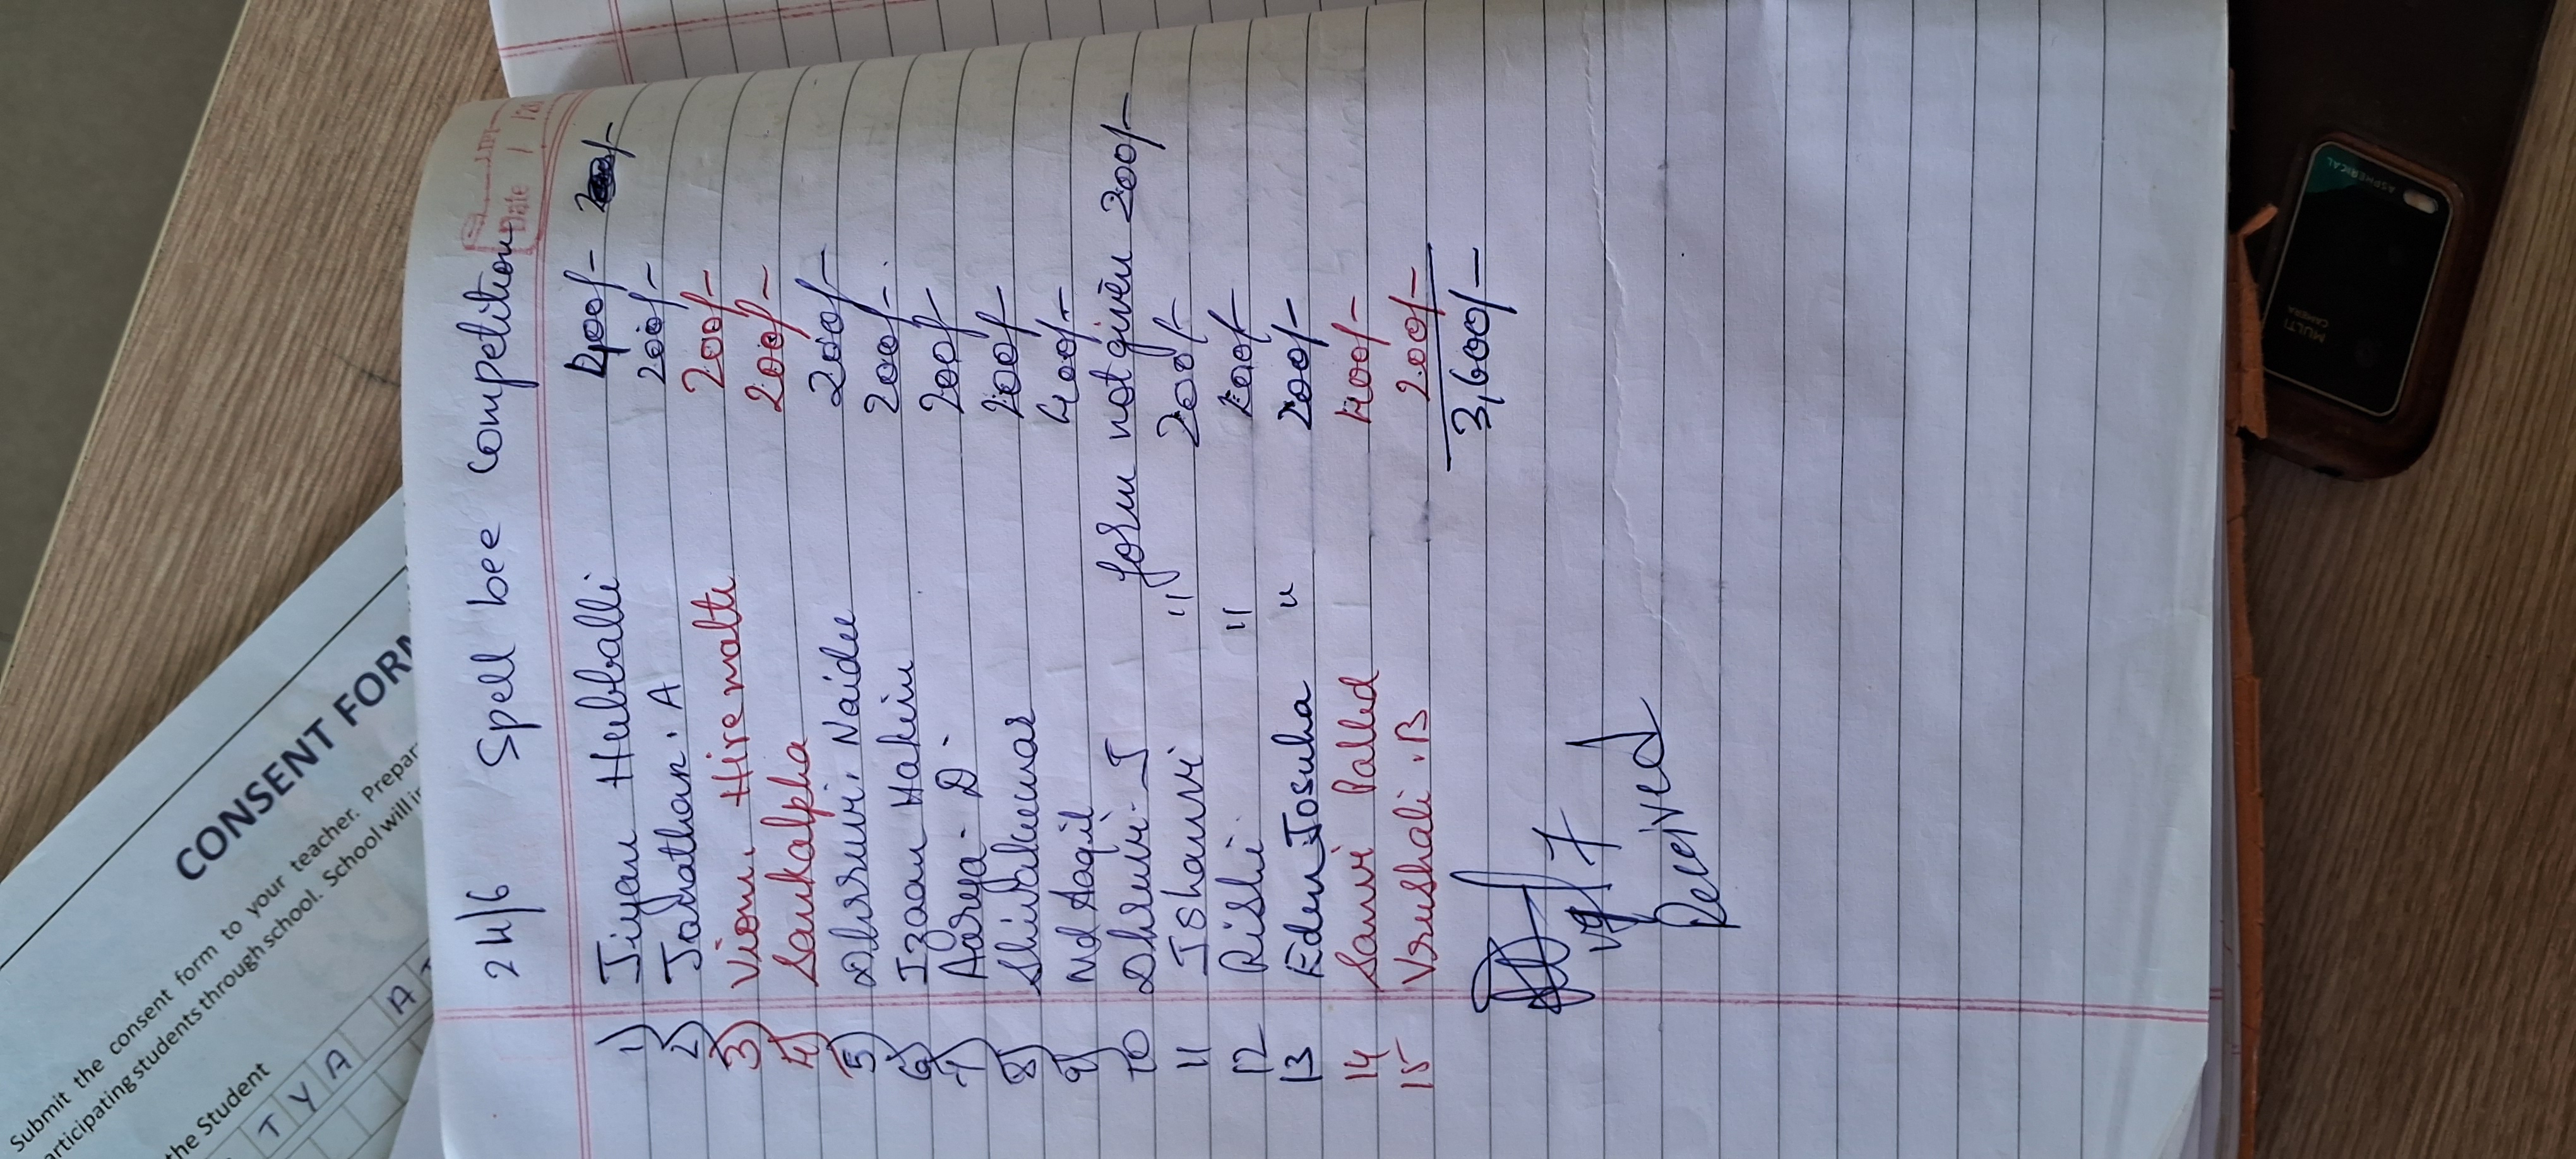 Date / /20
24/6 Spell bee Competition
1) Jiyan Hebballi 400/-
2) Jonathan. A 200/-
3) Viom Hiremath 200/-
4) Sankalpha 200/-
5) Dhruvi. Naidu 200/-
6) Izaan Hakim 200/-
7) Aarya. D. 200/-
8) Shivakumar 200/-
9) Md Aaqil 400/-
10 Dhruvi. J form not given 200/-
11 Ishanvi " 200/-
12 Rishi " 200/-
13 Eden Josuha " 200/-
14 Sanvi Palled 400/-
15 Vrushali .B 200/-
3,600/-
Received
CONSENT FORM
Submit the consent form to your teacher. Prepar
articipating students through school. School will i
the Student
T Y A A
MULTI
CAMERA
ASPHERICAL